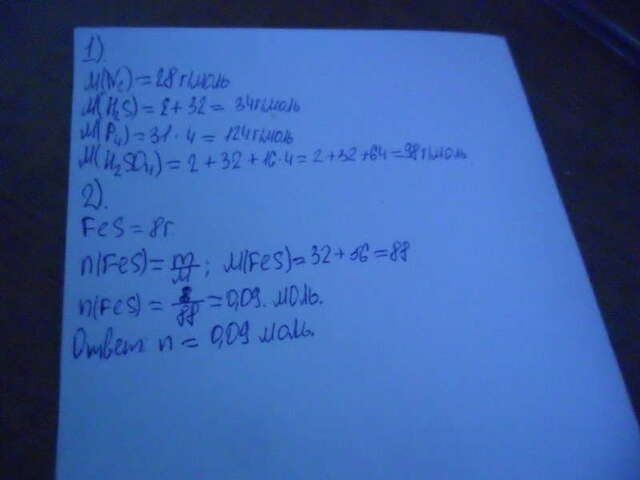 1).
M(N₂) = 28 г/моль
M(H₂S) = 2 + 32 = 34 г/моль
M(P₄) = 31 · 4 = 124 г/моль
M(H₂SO₄) = 2 + 32 + 16·4 = 2 + 32 + 64 = 98 г/моль
2).
FeS = 8г
n(FeS) = m/M; M(FeS) = 32 + 56 = 88
n(FeS) = 8/88 = 0,09 моль.
Ответ: n = 0,09 моль.